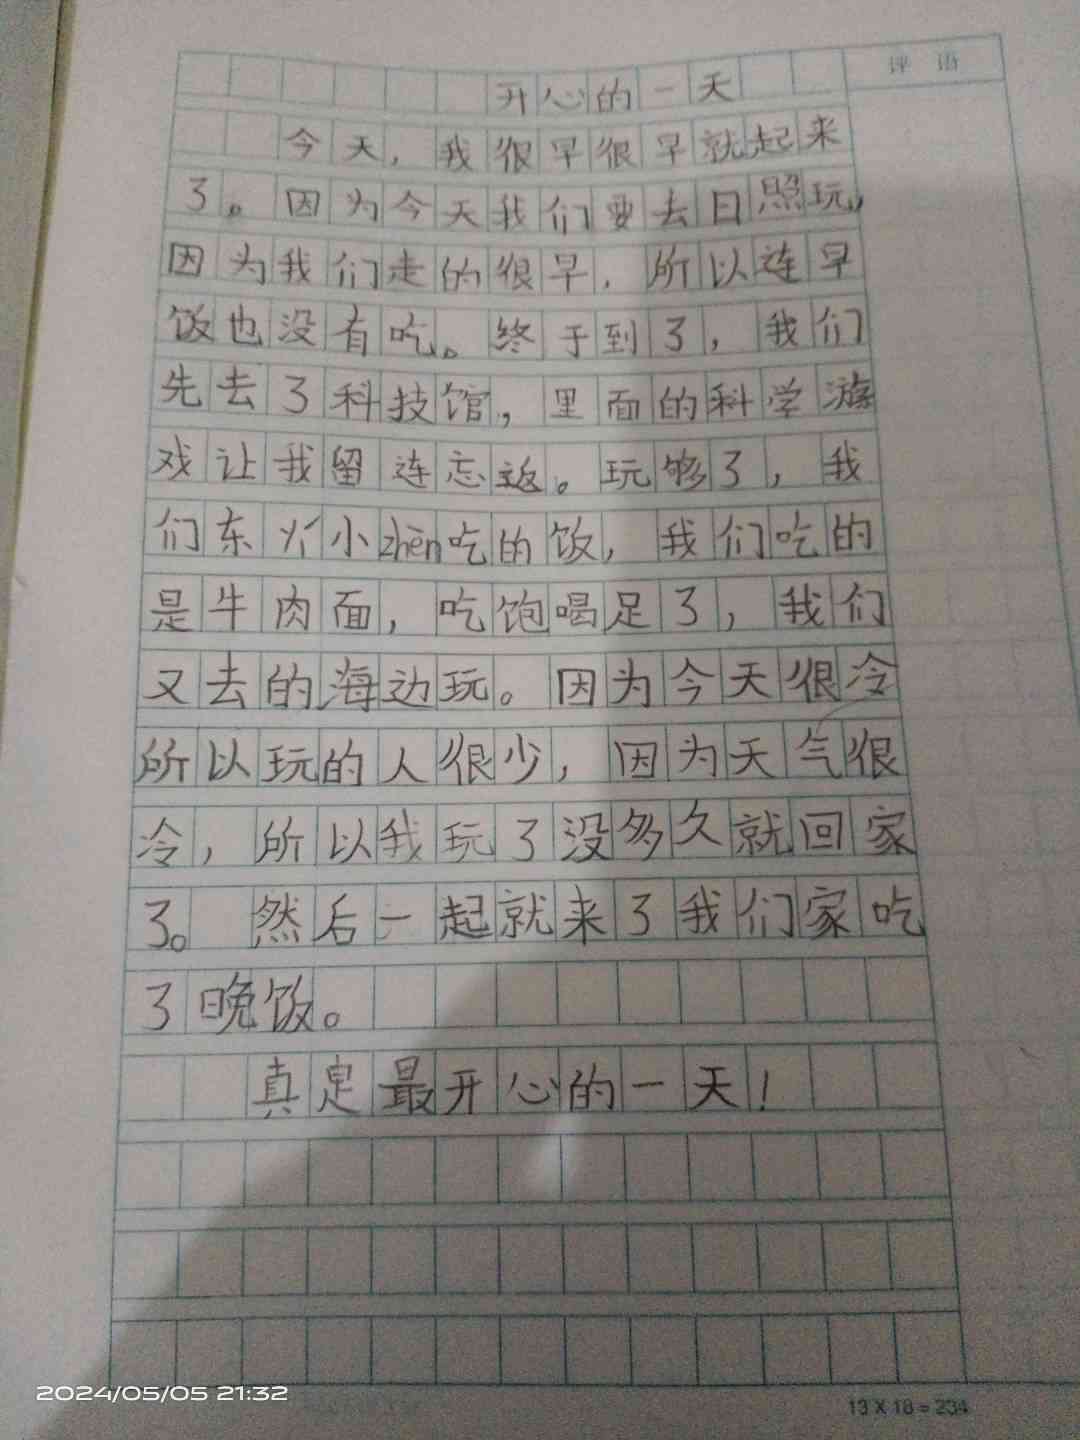 开心的一天
评 语
今天，我很早很早就起来
了。因为今天我们要去日照玩，
因为我们走的很早，所以连早
饭也没有吃。终于到了，我们
先去了科技馆，里面的科学游
戏让我留连忘返。玩够了，我
们东 小zhēn吃的饭，我们吃的
是牛肉面，吃饱喝足了，我们
又去的海边玩。因为今天很冷
所以玩的人很少，因为天气很
冷，所以我玩了没多久就回家
了。然后一起就来了我们家吃
了晚饭。
真是最开心的一天！
2024/05/05 21:32
13 X 18 = 234